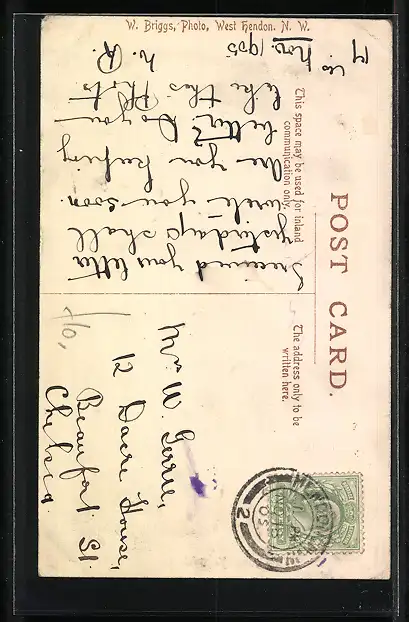 W. Briggs, Photo, West Hendon. N. W.
POST CARD.
This space may be used for inland
communication only.
The address only to be
written here.
Nov. 1905
received your letter
yesterday shall
write you soon
Are you keeping
better? Do you
like this Photo
N. R.
Mr W. Gerrie,
12 Dacre House,
Beaufort St.
Chelsea
HENDON
2